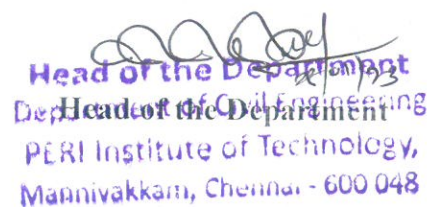 Head of the Department
Department of Civil Engineering
Head of the Department
PERI Institute of Technology,
Mannivakkam, Chennai - 600 048